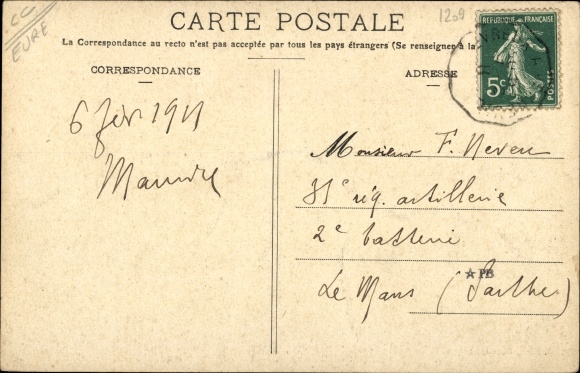 CC
EURE
1209
CARTE POSTALE
La Correspondance au recto n'est pas acceptée par tous les pays étrangers (Se renseigner à la
CORRESPONDANCE
ADRESSE
REPUBLIQUE FRANÇAISE
5c
POSTES
6 fév 1911
Maurice
Monsieur F. Neveu
31e rég. artillerie
2e batterie
Le Mans (Sarthe)
PB